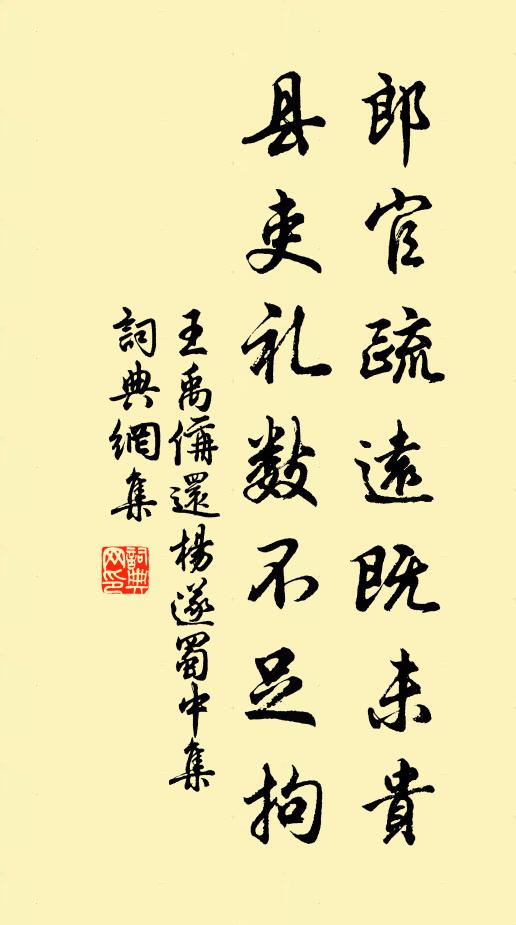 郎官疏遠既未貴
县吏礼数不足拘
王禹偁還楊遂蜀中集
詞典網集
詞典网印